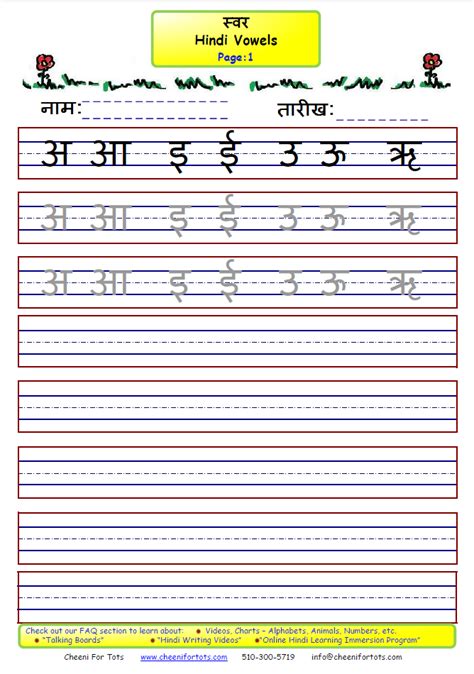 स्वर
Hindi Vowels
Page:1
नाम:
तारीख:
अ आ इ ई उ ऊ ऋ
अ आ इ ई उ ऊ ऋ
अ आ इ ई उ ऊ ऋ
Check out our FAQ section to learn about: • Videos, Charts – Alphabets, Animals, Numbers, etc.
• "Talking Boards" • "Hindi Writing Videos" • "Online Hindi Learning Immersion Program"
Cheeni For Tots www.cheenifortots.com 510-300-5719 info@cheenifortots.com